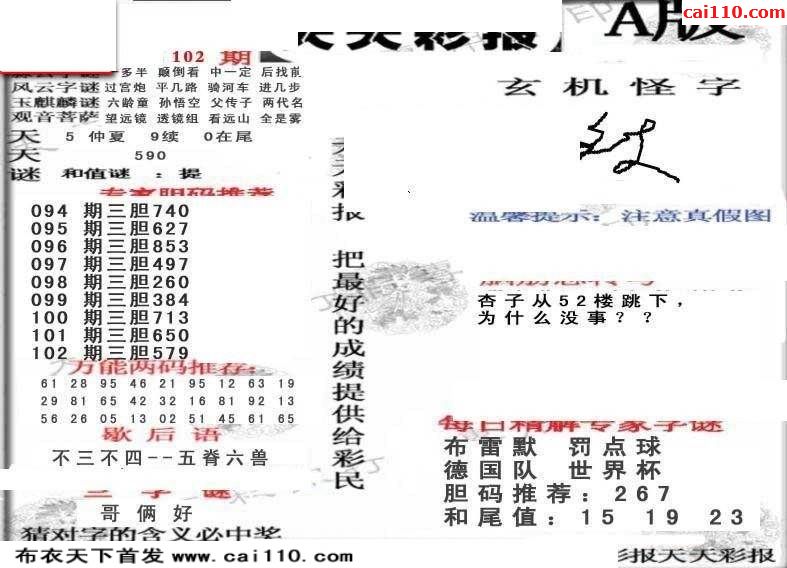 cai110.com
天天彩报
A版
102 期
一多半 颠倒看 中一定 后找前
风云字谜 过宫炮 平几路 骑河车 进几步
玉麒麟谜 六龄童 孙悟空 父传子 两代名
观音菩萨 望远镜 透镜组 看远山 全是雾
天 5 仲夏 9续 0在尾
天 590
谜 和值谜 ：提
专家胆码推荐
094 期三胆740
095 期三胆627
096 期三胆853
097 期三胆497
098 期三胆260
099 期三胆384
100 期三胆713
101 期三胆650
102 期三胆579
万能两码推荐:
61 28 95 46 21 95 12 63 19
29 81 65 42 32 16 81 92 13
56 26 05 13 02 51 45 61 65
歇后语
不三不四--五脊六兽
三字谜
哥俩好
猜对字的含义必中奖
布衣天下首发 www.cai110.com
天天彩报
把最好的成绩提供给彩民
玄机怪字
温馨提示：注意真假图
脑筋急转弯
杏子从52楼跳下，
为什么没事？？
每日精解专家字谜
布雷默 罚点球
德国队 世界杯
胆码推荐：267
和尾值：15 19 23
彩报天天彩报